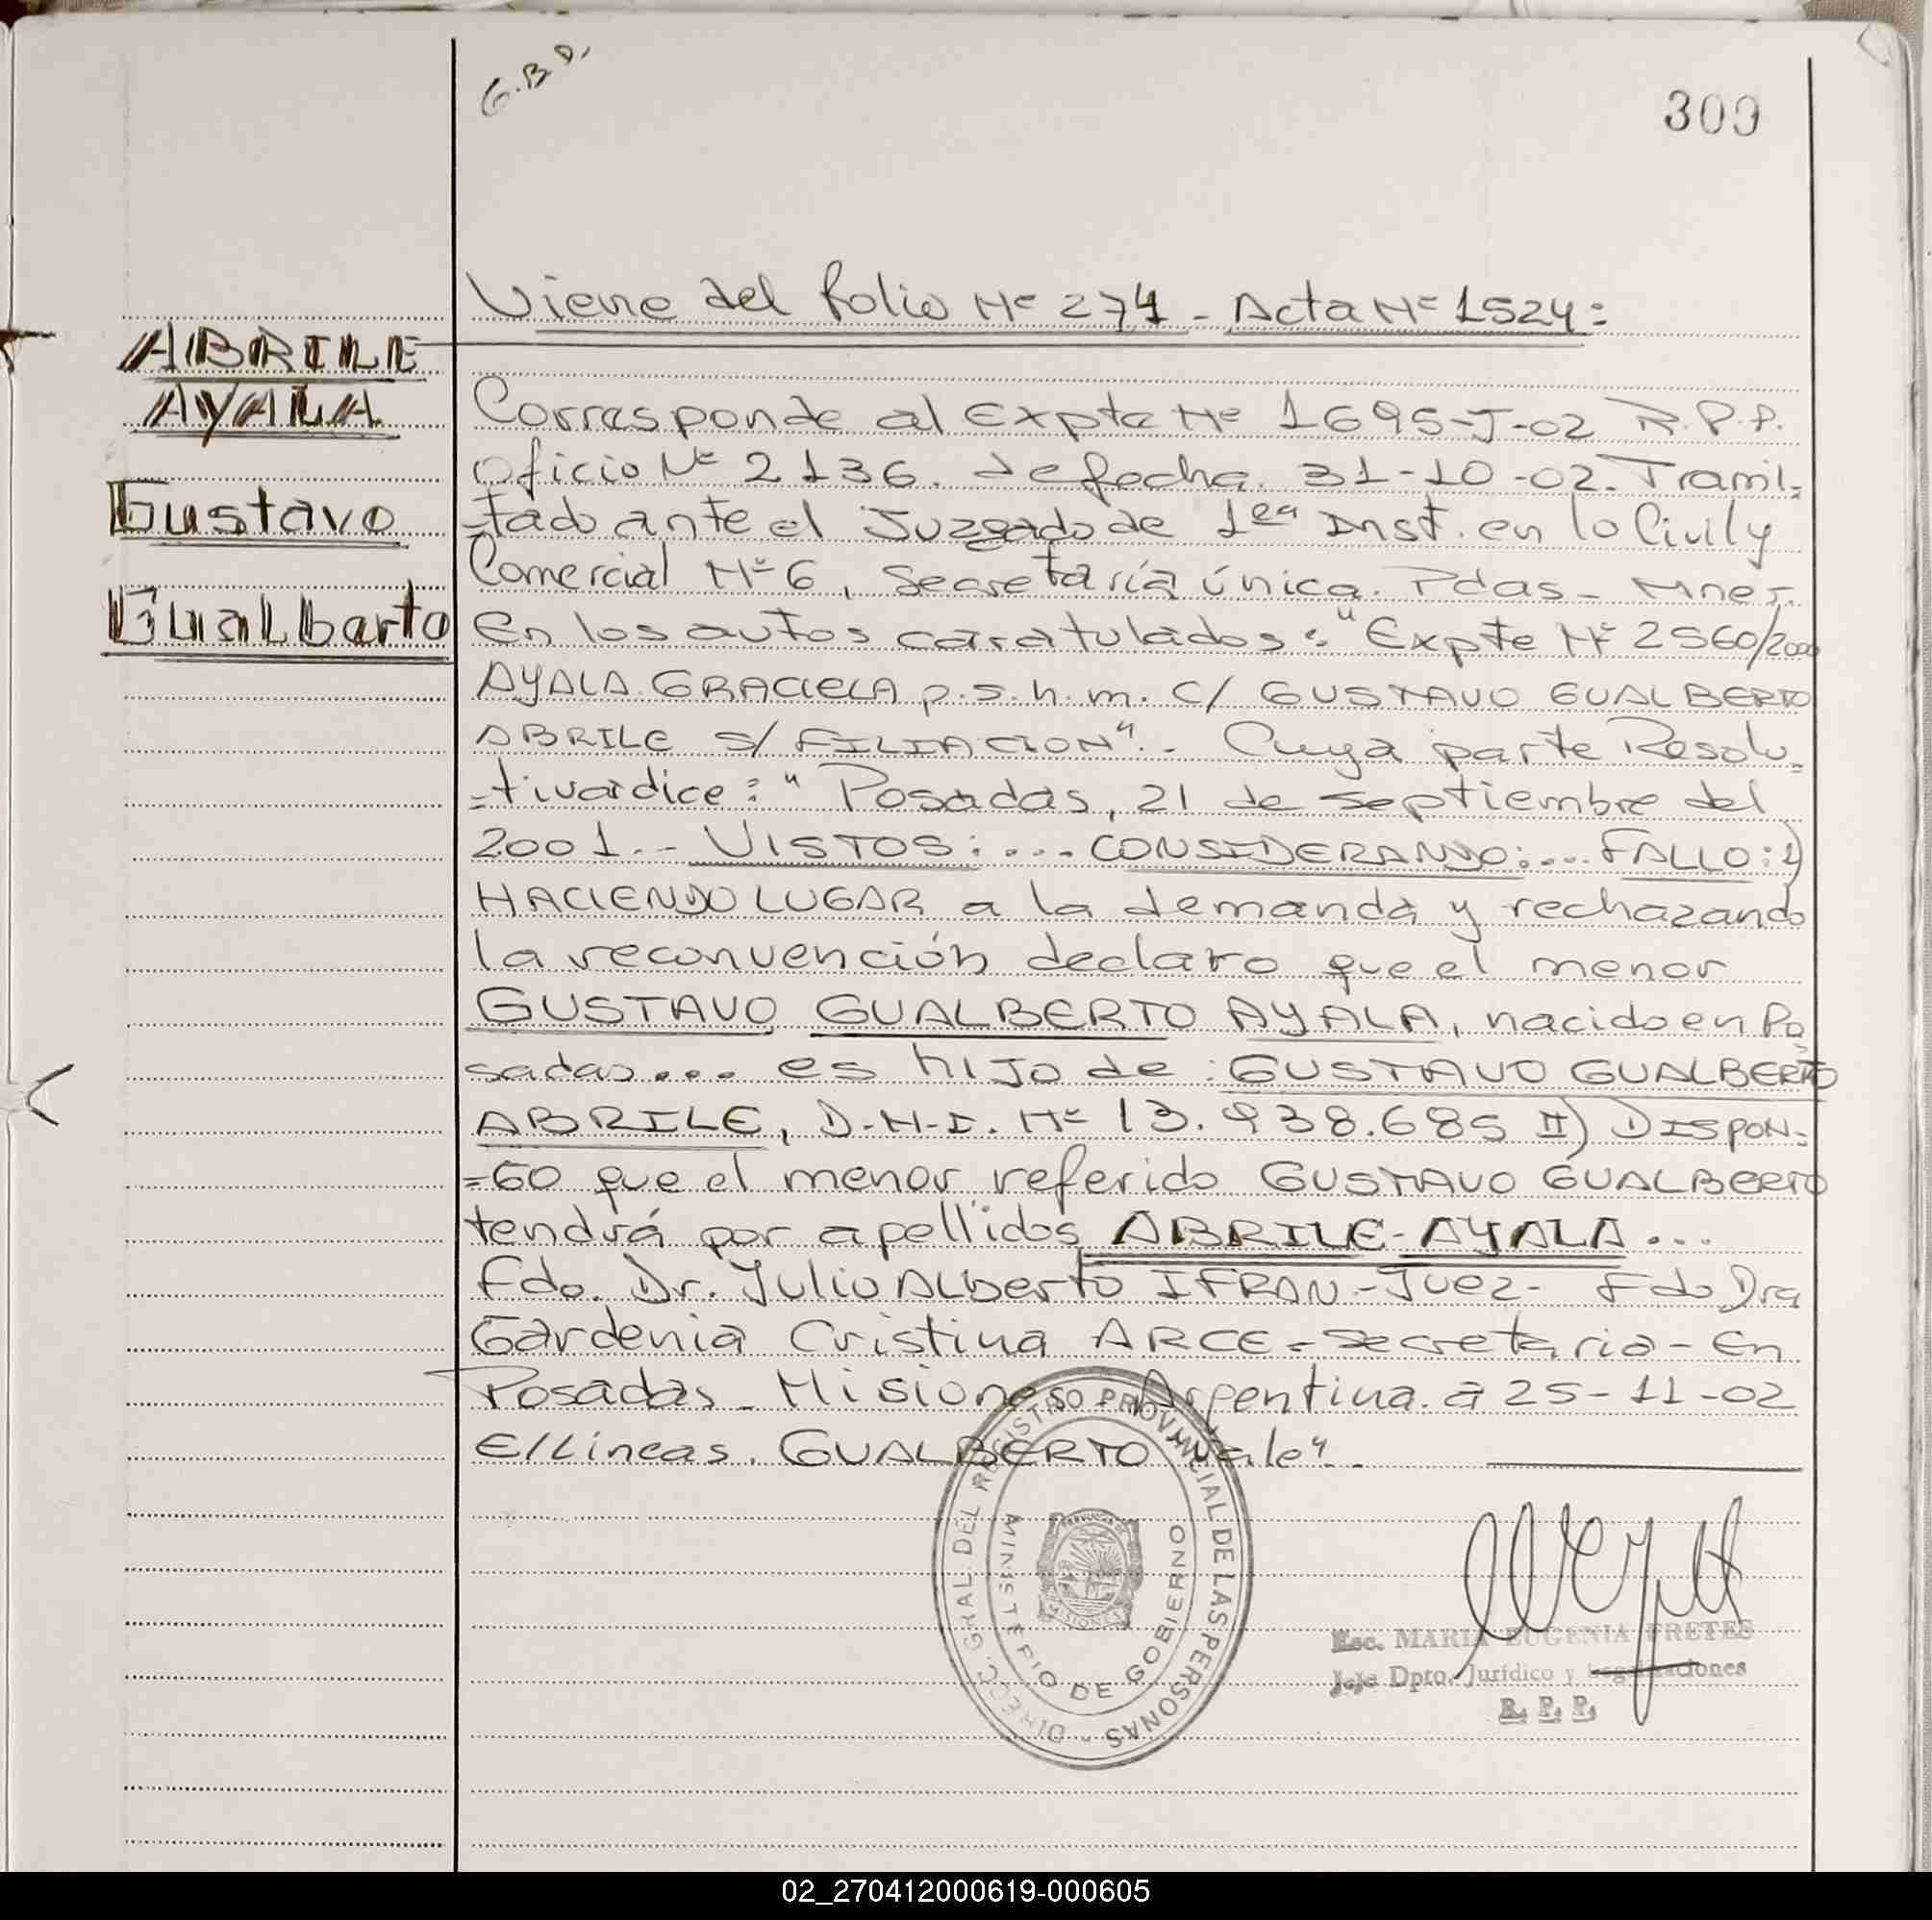 G.B.D.
309
Viene del folio Nº 274 - Acta Nº 1524:
ABRILE
AYALA
Gustavo
Gualberto
Corresponde al Expte Nº 1695-J-02 R.P.P.
Oficio Nº 2136. de fecha. 31-10-02. Trami-
-tado ante el Juzgado de 1era Inst. en lo Civil y
Comercial Nº 6, Secretaría única. Pdas - Mnes.
En los autos caratulados: "Expte Nº 2560/2000
AYALA GRACIELA p.s.h.m. C/ GUSTAVO GUALBERTO
ABRILE S/ FILIACION".- Cuya parte Resolu-
-tiva dice: "Posadas, 21 de septiembre del
2001.- VISTOS:... CONSIDERANDO:... FALLO: 1)
HACIENDO LUGAR a la demanda y rechazando
la reconvención declaro que el menor
GUSTAVO GUALBERTO AYALA, nacido en Po
sadas... es hijo de: GUSTAVO GUALBERTO
ABRILE, D.N.I. Nº 13.938.685 II) DISPON-
-GO que el menor referido GUSTAVO GUALBERTO
tendrá por apellidos ABRILE-AYALA...
Fdo. Dr. Julio Alberto IFRAN-Juez- Fdo Dra
Gardenia Cristina ARCE-secretaria- En
Posadas - Misiones Argentina. a 25-11-02
E/Lineas. GUALBERTO Vale".
DIREC. GRAL. DEL REGISTRO PROVINCIAL DE LAS PERSONAS -
MINISTERIO DE GOBIERNO
MISIONES
Esc. MARIA EUGENIA FRETES
Jefe Dpto. Jurídico y Legalizaciones
R. P. P.
02_270412000619-000605